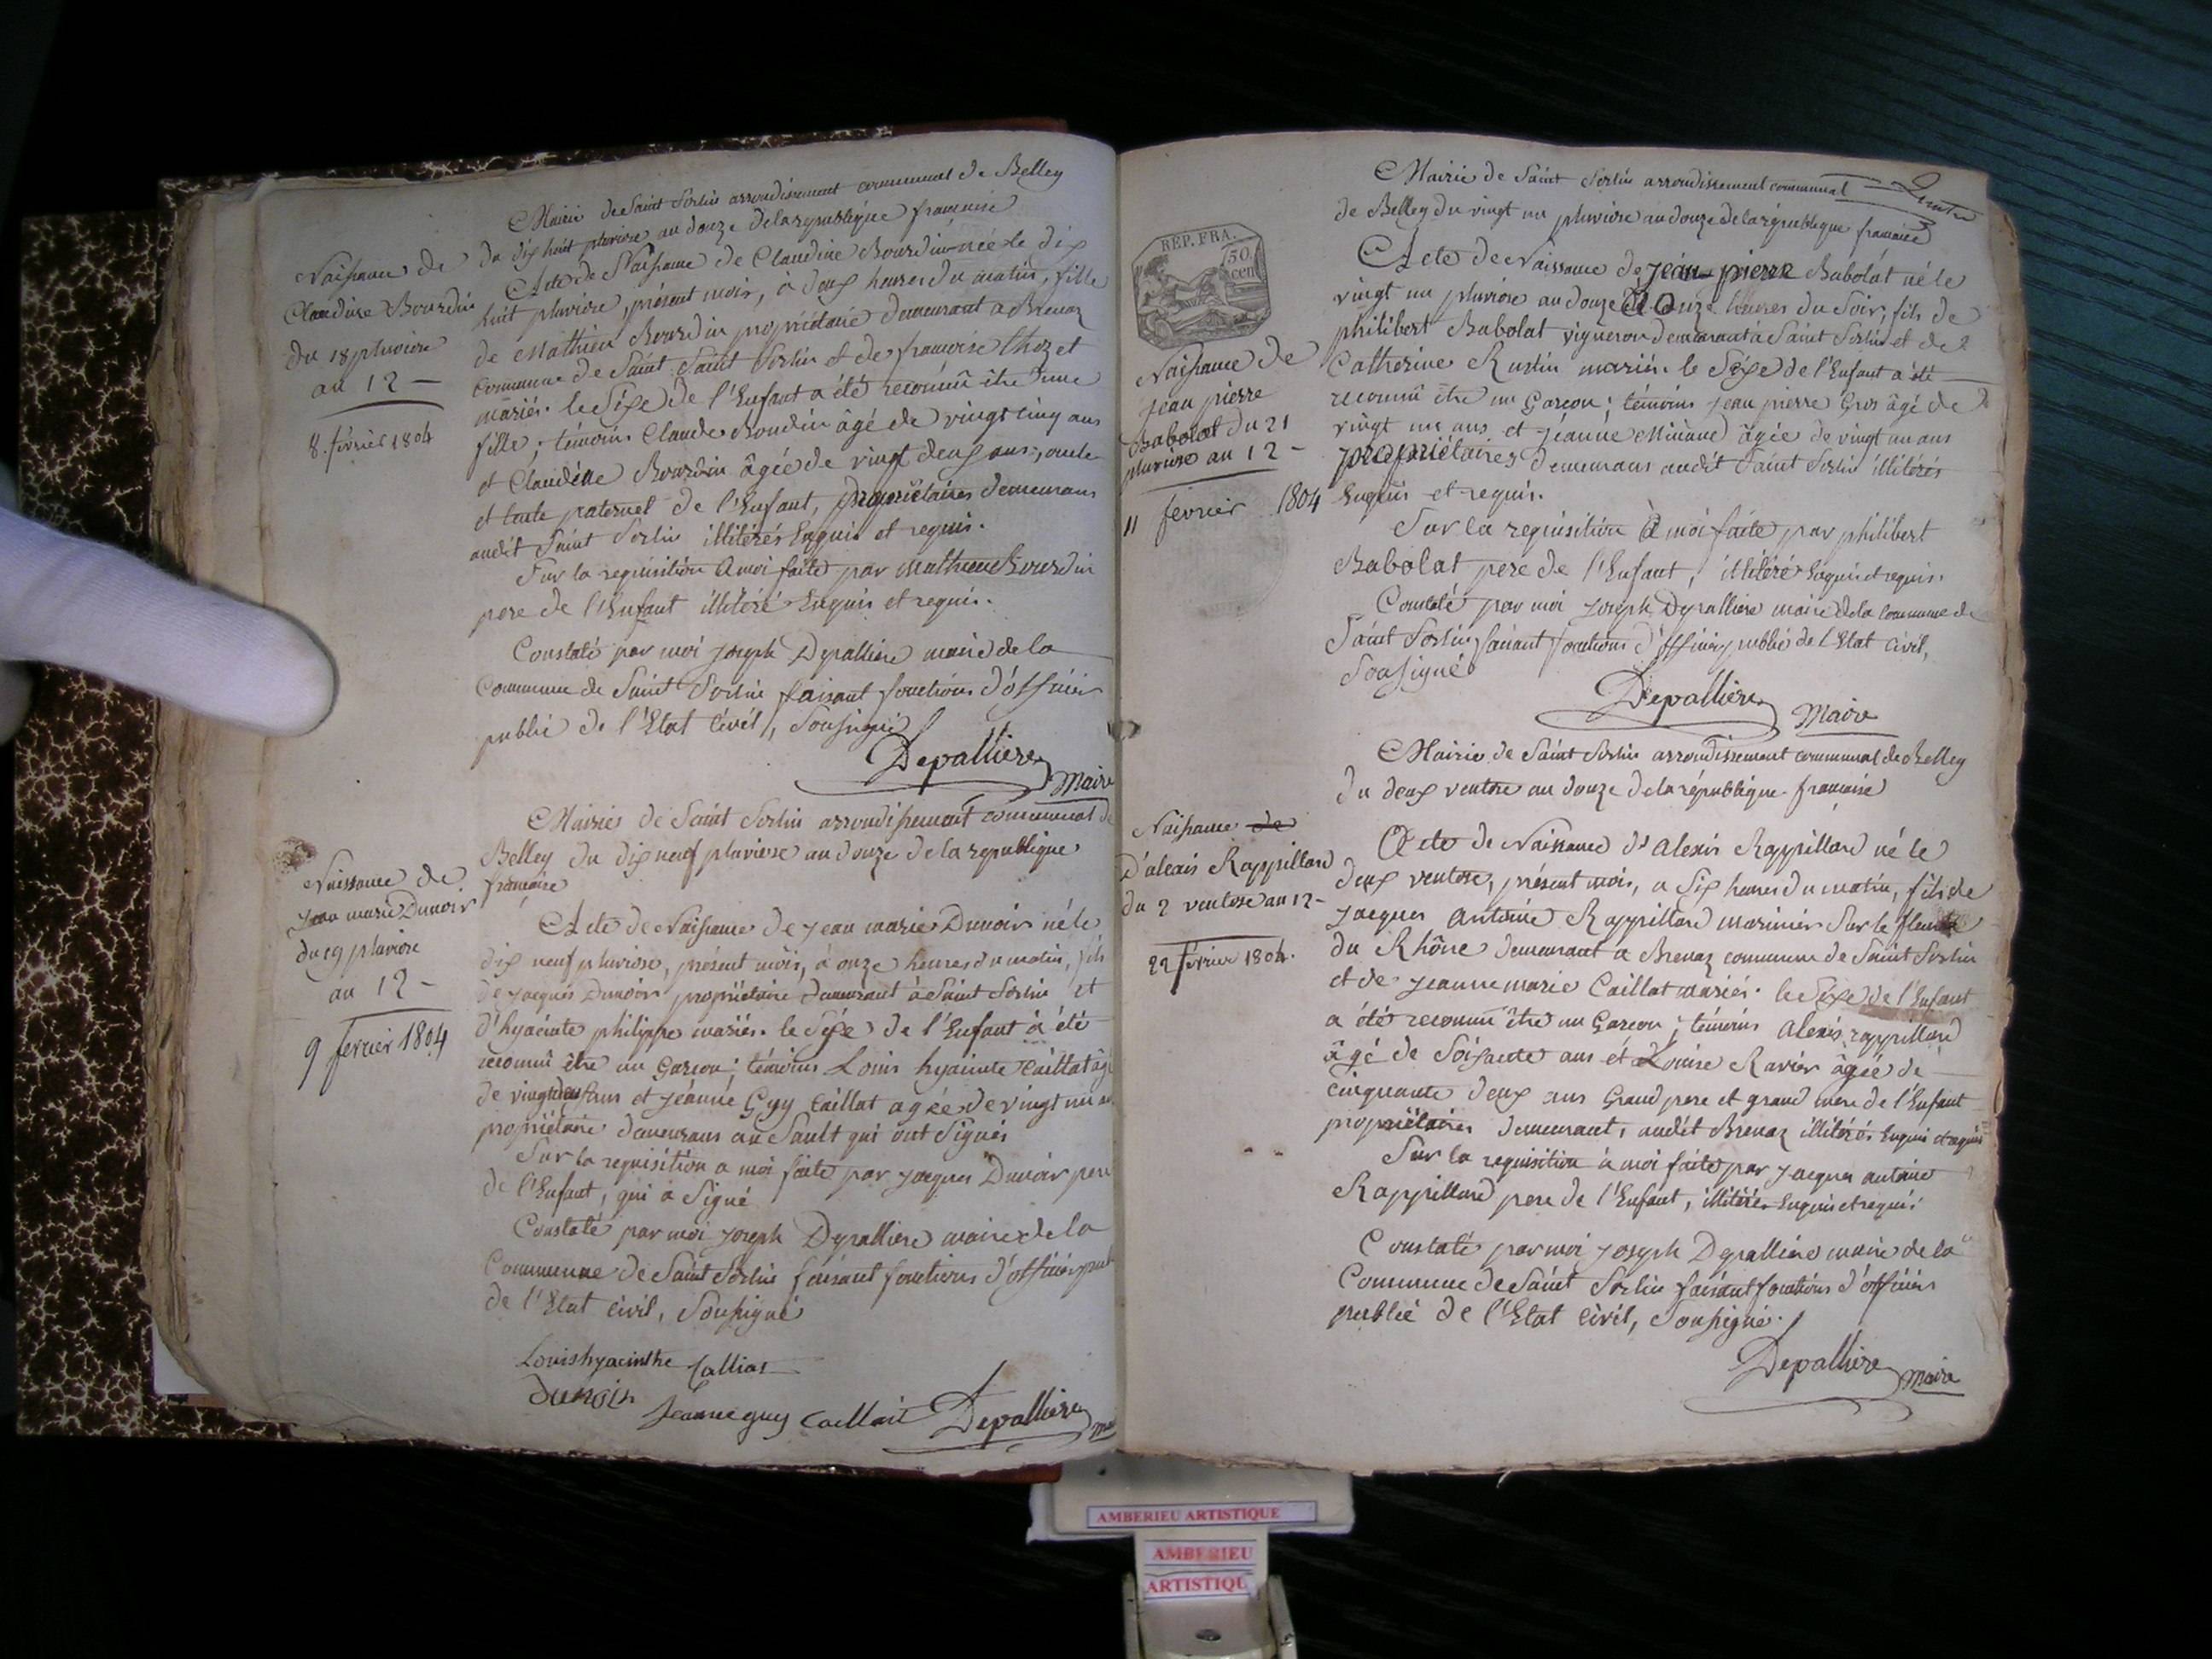 Mairie de Saint Sorlin arrondissement communal de Belley
du dix huit pluviose an douze de la république française
Naissance de
Claudine Bourdin
du 18 pluviose
an 12 –
8. février 1804
Acte de Naissance de Claudine Bourdin née le dix
huit pluviose, présent mois, à deux heures du matin, fille
de Mathieu Bourdin propriétaire demeurant a Brenaz
commune de Saint Saint Sorlin et de francoise thozet
mariés. le Sexe de l'Enfant a été reconnû être une
fille; témoins Claude Bourdin âgé de vingt cinq ans
et Claudine Bourdin âgée de vingt deux ans, oncle
et tante paternel de l'Enfant, propriétaires demeurans
audit Saint Sorlin illitérés Enquis et requis.
Sur la requisition a moi faite par Mathieu Bourdin
pere de l'Enfant illitéré Enquis et requis.
Constaté par moi joseph Depalliere maire de la
Commune de Saint Sorlin faisant fonctions d'officier
public de l'Etat Civil, Soussigné
Depalliere
Maire
Mairie de Saint Sorlin arrondissement communal de
Belley du dix neuf pluviose an douze de la republique
française
Naissance de
jean marie Dunoir
du 19 pluviose
an 12 –
9 fevrier 1804
Acte de Naissance de jean marie Dunoir né le
dix neuf pluviose, présent mois, à onze heures du matin, fils
de jacques Dunoir propriétaire demeurant à Saint Sorlin et
d'hyacinte philippe mariés. le Sexe de l'Enfant à été
reconnû être un Garcon; témoins Louis hyacinte Caillat âgé
de vingt deux ans et jéanne Guy Caillat agée de vingt un an
propriétaire demeurans au Sault qui ont Signés
Sur la requisition a moi faite par jacques Dunoir pere
de l'Enfant, qui a Signé
Constaté par moi joseph Depalliere maire de la
Commune de Saint Sorlin faisant fonctions d'officier publ
de l'Etat Civil, Soussigné
Louis hyacinthe Calliat
Dunoir
Jeanne guy Caillait
Depalliere
Mairie de Saint Sorlin arrondissement communal
de Belley du vingt un pluviose an douze de la république francaise
REP. FRA.
50
cen
Naissance de
jean pierre
Babolat du 21
pluviose an 12 –
11 fevrier 1804
Acte de Naissance de jean pierre Babolat né le
vingt un pluviose an douze a onze heures du Soir, fils de
philibert Babolat vigneron demeurant à Saint Sorlin et de
Catherine Rustin mariés. le Sexe de l'Enfant a été
reconnû être un Garcon; témoins jean pierre Gros âgé de
vingt un ans et jéanne Minand âgée de vingt un ans
propriétaires demeurans audit Saint Sorlin illitérés
Enquis et requis.
Sur la requisition à moi faite par philibert
Babolat pere de l'Enfant, illitéré Enquis et requis.
Constaté par moi joseph Depalliere maire de la Commune de
Saint Sorlin faisant fonctions d'officier public de l'Etat Civil,
Soussigné
Depalliere
Maire
Mairie de Saint Sorlin arrondissement communal de Belley
du deux ventose an douze de la république française
Naissance de
d'alexis Rappillard
du 2 ventose an 12 –
22 février 1804.
Acte de Naissance d'alexis Rappillard né le
deux ventose, présent mois, a Six heures du matin, fils de
jacques antoine Rappillard marinier Sur le fleuve
du Rhône demeurant a Brenaz commune de Saint Sorlin
et de jeanne marie Caillat mariés. le Sexe de l'Enfant
a été reconnû être un Garcon; témoins alexis rappillard
âgé de Soixante ans et Louise Ravier âgée de
cinquante deux ans Grand pere et grand mere de l'Enfant
propriétaires demeurant, audit Brenaz illitérés Enquis et requis
Sur la requisition à moi faite par jacques antoine
Rappillard pere de l'Enfant, illitéré Enquis et requis.
Constaté par moi joseph Depalliere maire de la
Commune de Saint Sorlin faisant fonctions d'officier
public de l'Etat Civil, Soussigné.
Depalliere
Maire
AMBERIEU ARTISTIQUE
AMBERIEU
ARTISTIQU